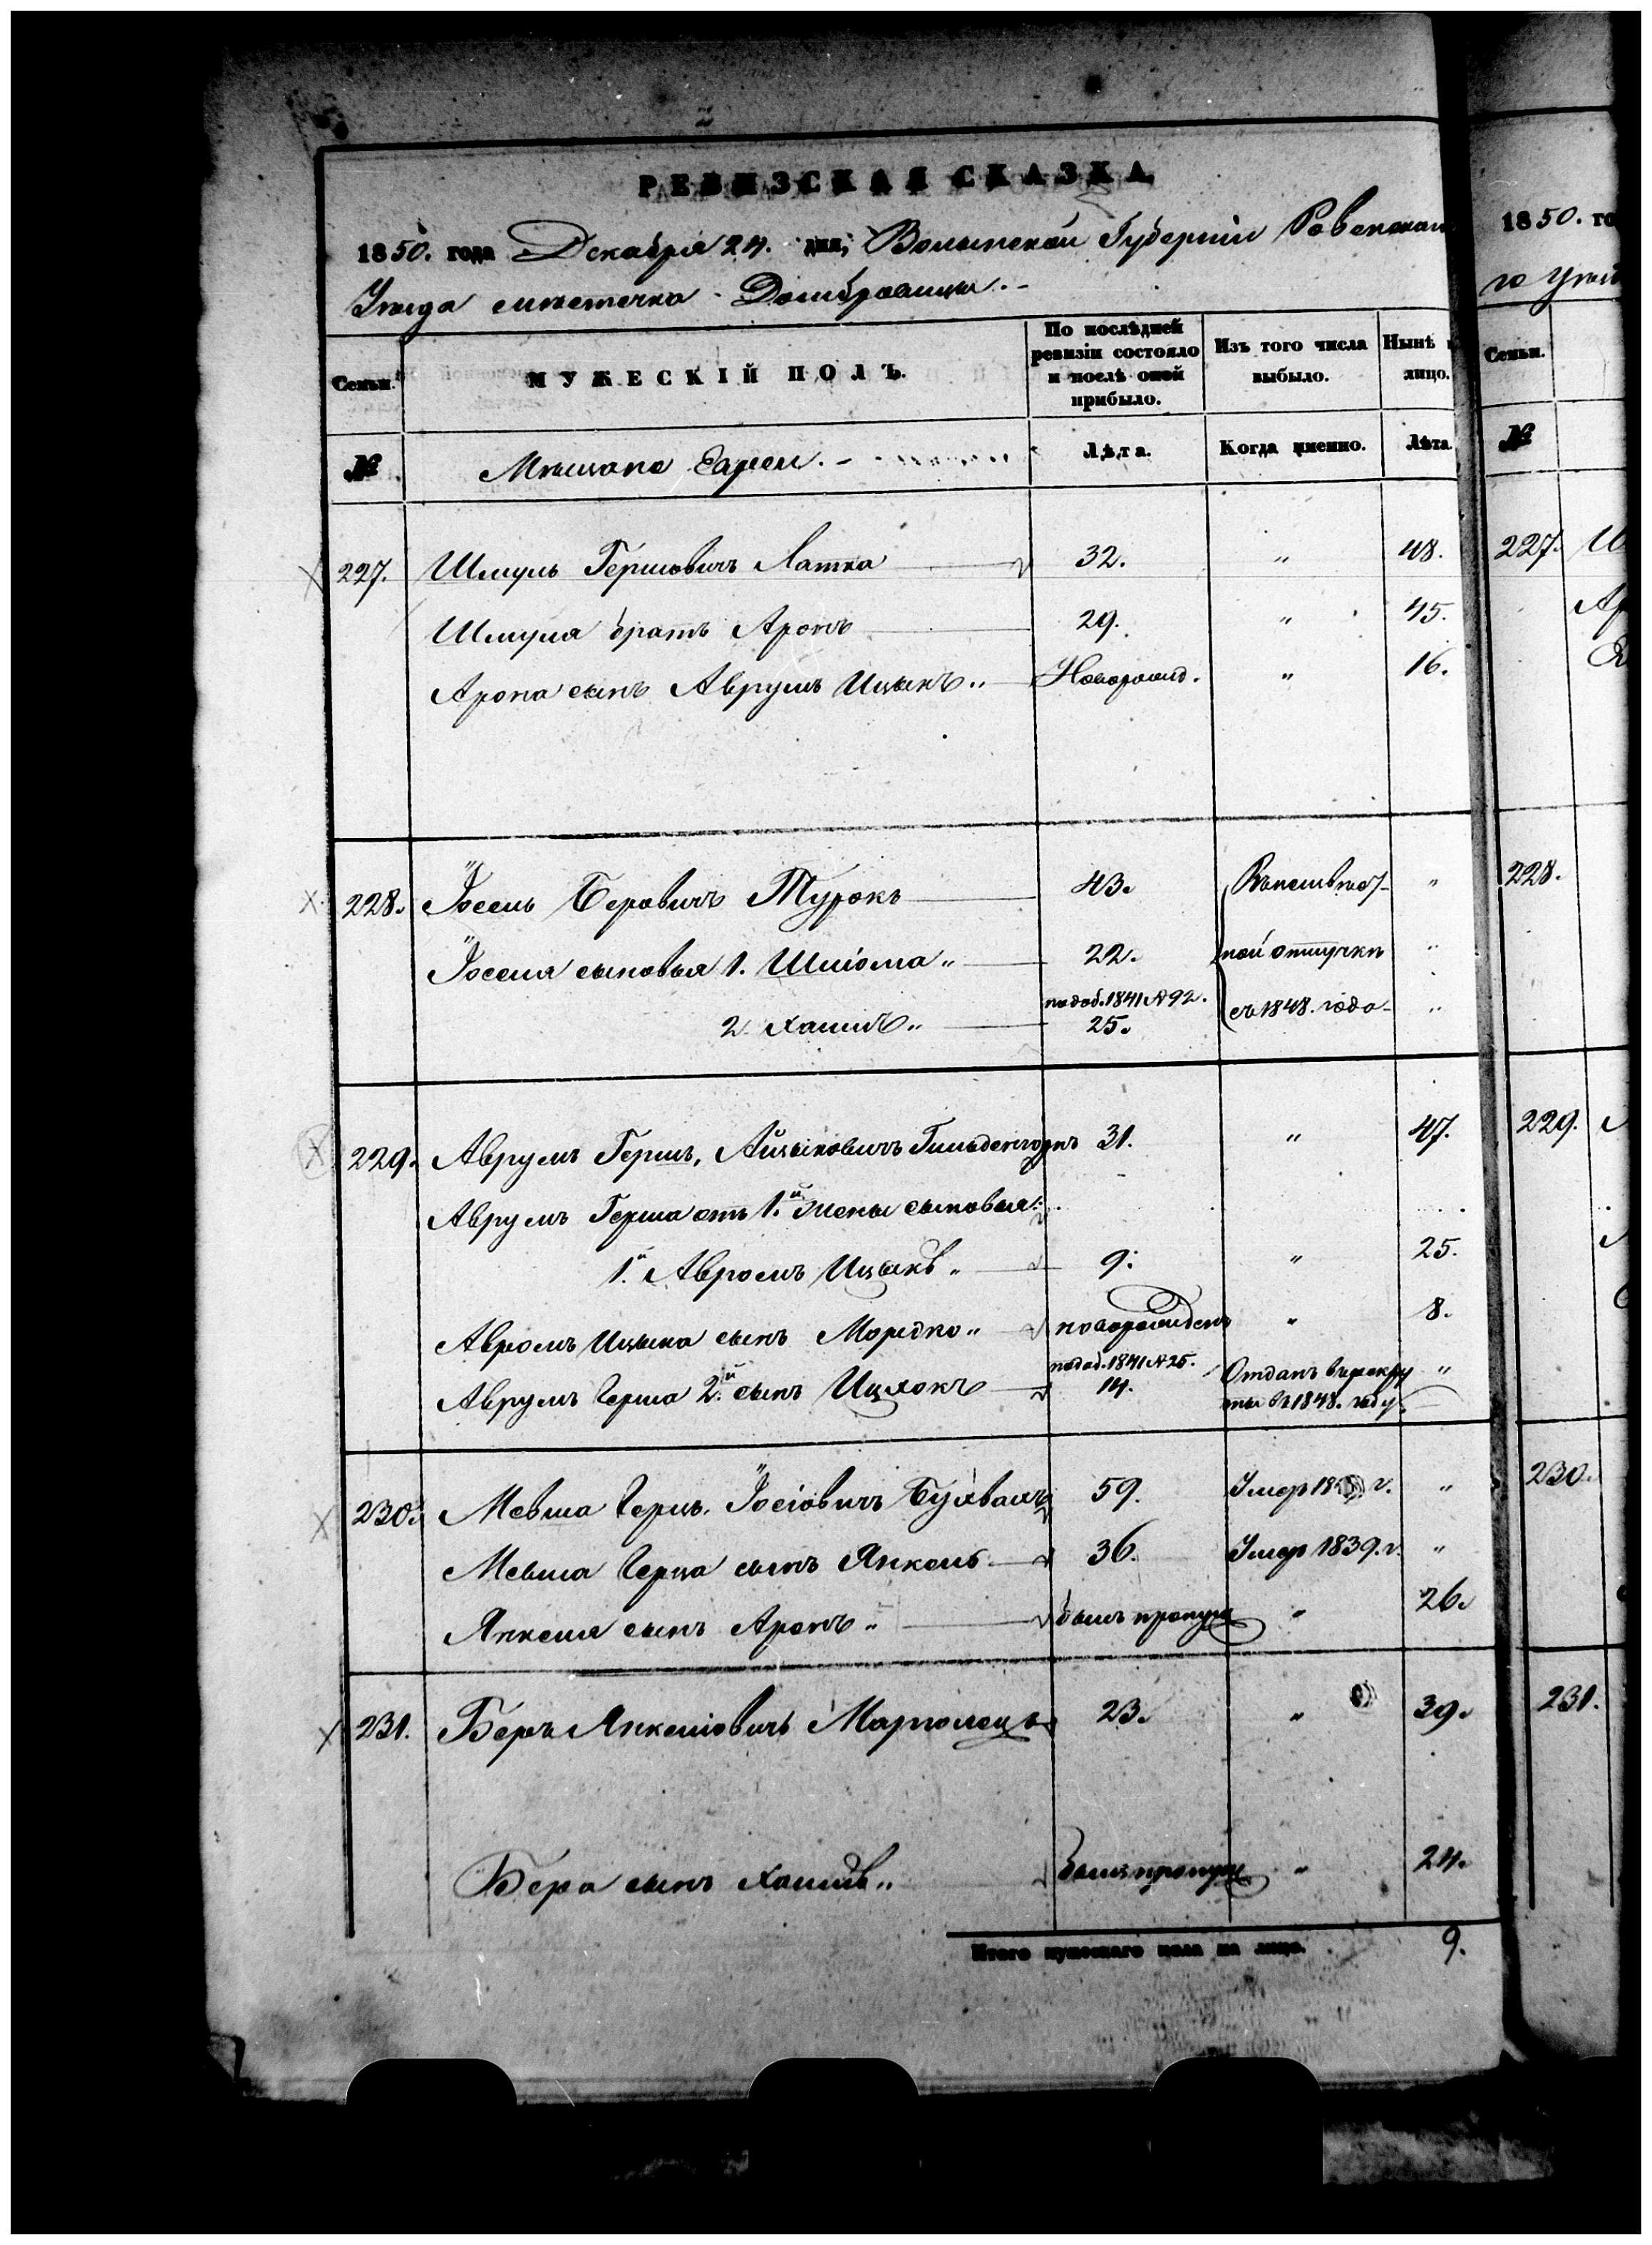 РЕВИЗСКАЯ СКАЗКА
1850. года Декабря 24. дня, Волынской Губерніи Ровенскаго
Уѣзда мѣстечка Домбровицы.
Семьи.
МУЖЕСКІЙ ПОЛЪ.
По послѣдней ревизіи состояло и послѣ оной прибыло.
Изъ того числа выбыло.
Нынѣ
лицо.
№
Мѣщане Евреи.
Лѣта.
Когда именно.
Лѣта.
227. Шмуль Гершовичъ Латка 32. " 48.
Шмуля братъ Аронъ 29. " 45.
Арона сынъ Аврумъ Ицыкъ " Новорожд. " 16.
228. Іосель Беровичъ Турокъ 43. "
Іоселя сыновья 1. Шліома " 22. ной отлучкѣ "
по доб. 1841 № 92.
2. Хаимъ " 25. съ 1848. года "
229. Аврумъ Гершъ, Айзыковичъ Гильденгорнъ 31. " 47.
Аврумъ Герша отъ 1.й жены сыновья:
1.й Авромъ Ицыкъ " 9. " 25.
Авромъ Ицыка сынъ Мордко " новорожденъ " 8.
по доб. 1841 № 25.
Аврумъ Герша 2.й сынъ Ицхокъ 14. Отданъ въ рекру "
ты въ 1848. году.
230. Мевша Герцъ. Іосіовичъ 59. Умер 18 г. "
Мевша Герца сынъ Янкель 36. Умер 1839. г. "
Янкеля сынъ Аронъ " былъ пропущ " 26.
231. Беръ Янкеліовичъ 23. " 39.
Бера сынъ Хаимъ " былъ пропущ " 24.
Итого мужескаго пола на лицо. 9.
1850. го
го Уѣзд
Семьи.
№
227. Ш
Ар
228.
229.
230.
231.